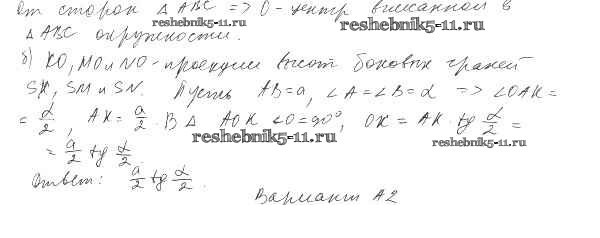 от сторон △ABC => O - центр вписанной в
reshebnik5-11.ru
reshebnik5-11.ru
△ABC окружности.
б) KO, MO и NO - проекции высот боковых граней
SK, SM и SN. Пусть AB=a, ∠A=∠B=α => ∠OAK=
= α/2, AK = a/2. В △ AOK ∠O=90°, OK = AK · tg α/2 =
reshebnik5-11.ru
reshebnik5-11.ru
= a/2 tg α/2.
Ответ: a/2 tg α/2.
Вариант А2